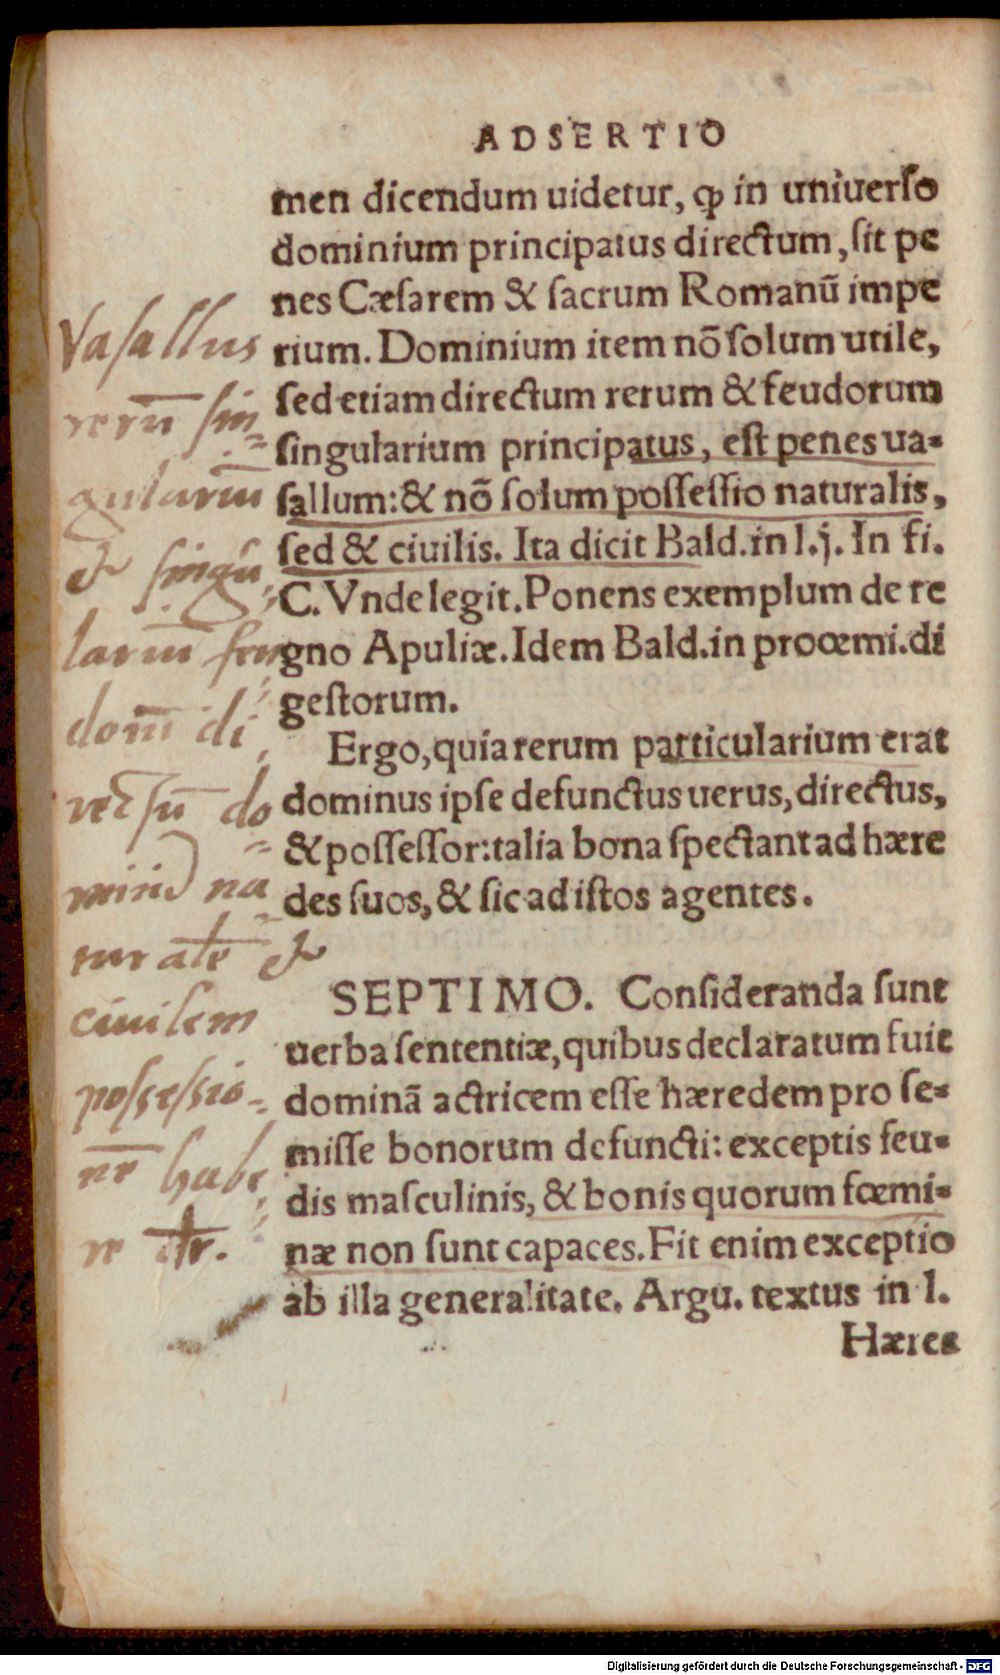 ADSERTIO
men dicendum uidetur, ꝙ in uniuerſo
dominium principatus directum, ſit pe
nes Cæſarem & ſacrum Romanũ impe
rium. Dominium item nõ ſolum utile,
ſed etiam directum rerum & feudorum
ſingularium principatus, eſt penes ua-
ſallum: & nõ ſolum poſſeſſio naturalis,
ſed & ciuilis. Ita dicit Bald. in l. j. In fi.
C. Vnde legit. Ponens exemplum de re
gno Apuliæ. Idem Bald. in prooemi. di
geſtorum.
Ergo, quia rerum particularium erat
dominus ipſe defunctus uerus, directus,
& poſſeſſor: talia bona ſpectant ad hære
des ſuos, & ſic ad iſtos agentes.
SEPTIMO. Conſideranda ſunt
uerba ſententiæ, quibus declaratum fuit
dominã actricem eſſe hæredem pro ſe-
miſſe bonorum defuncti: exceptis feu-
dis maſculinis, & bonis quorum fœmi-
næ non ſunt capaces. Fit enim exceptio
ab illa generalitate. Argu. textus in l.
Hæres
Vaſallus
rerũ ſin-
gulariũ
& ſingu-
lariũ feu-
dorũ di
rectũ do-
miniũ na-
turale &
ciuilem
poſſeſſio-
nē habe-
re dr.
Digitalisierung gefördert durch die Deutsche Forschungsgemeinschaft - DFG